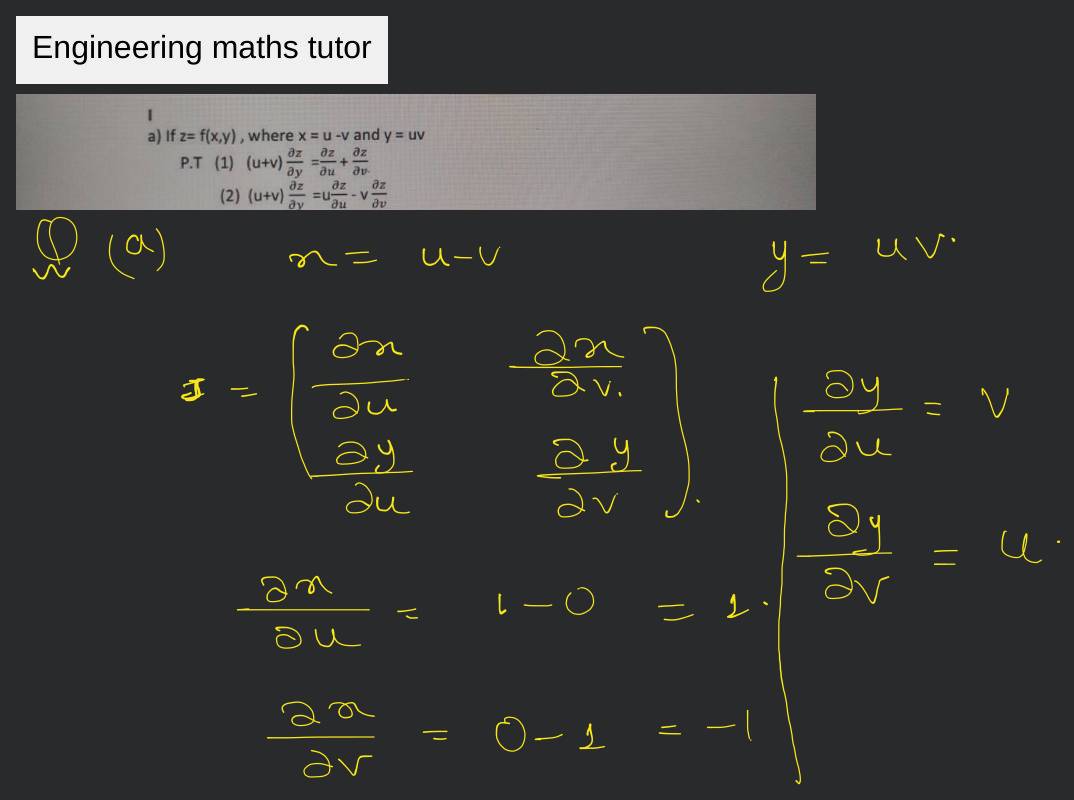 Engineering maths tutor
I
a) If z= f(x,y) , where x = u -v and y = uv
P.T (1) (u+v) ∂z/∂y = ∂z/∂u + ∂z/∂v.
(2) (u+v) ∂z/∂y =u ∂z/∂u - v ∂z/∂v
Q (a) x = u-v y = uv.
J = [ ∂x/∂u ∂x/∂v. ∂y/∂u ∂y/∂v ].
∂y/∂u = v
∂y/∂v = u.
∂x/∂u = 1-0 = 1.
∂x/∂v = 0-1 = -1